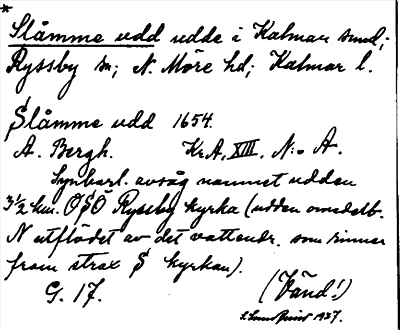 *
Slåmme udd udde i Kalmar sund;
Ryssby sn; N. Möre hd; Kalmar l.
Slåmme udd 1654.
A. Bergh. KrA, XIII, N:o A.
Synbarl. avsåg namnet udden
3 1/2 km. OSO Ryssby kyrka (udden omedelb.
N utflödet av det vattendr. som rinner
fram strax S kyrkan).
G. 17.
(Vänd!)
1937.